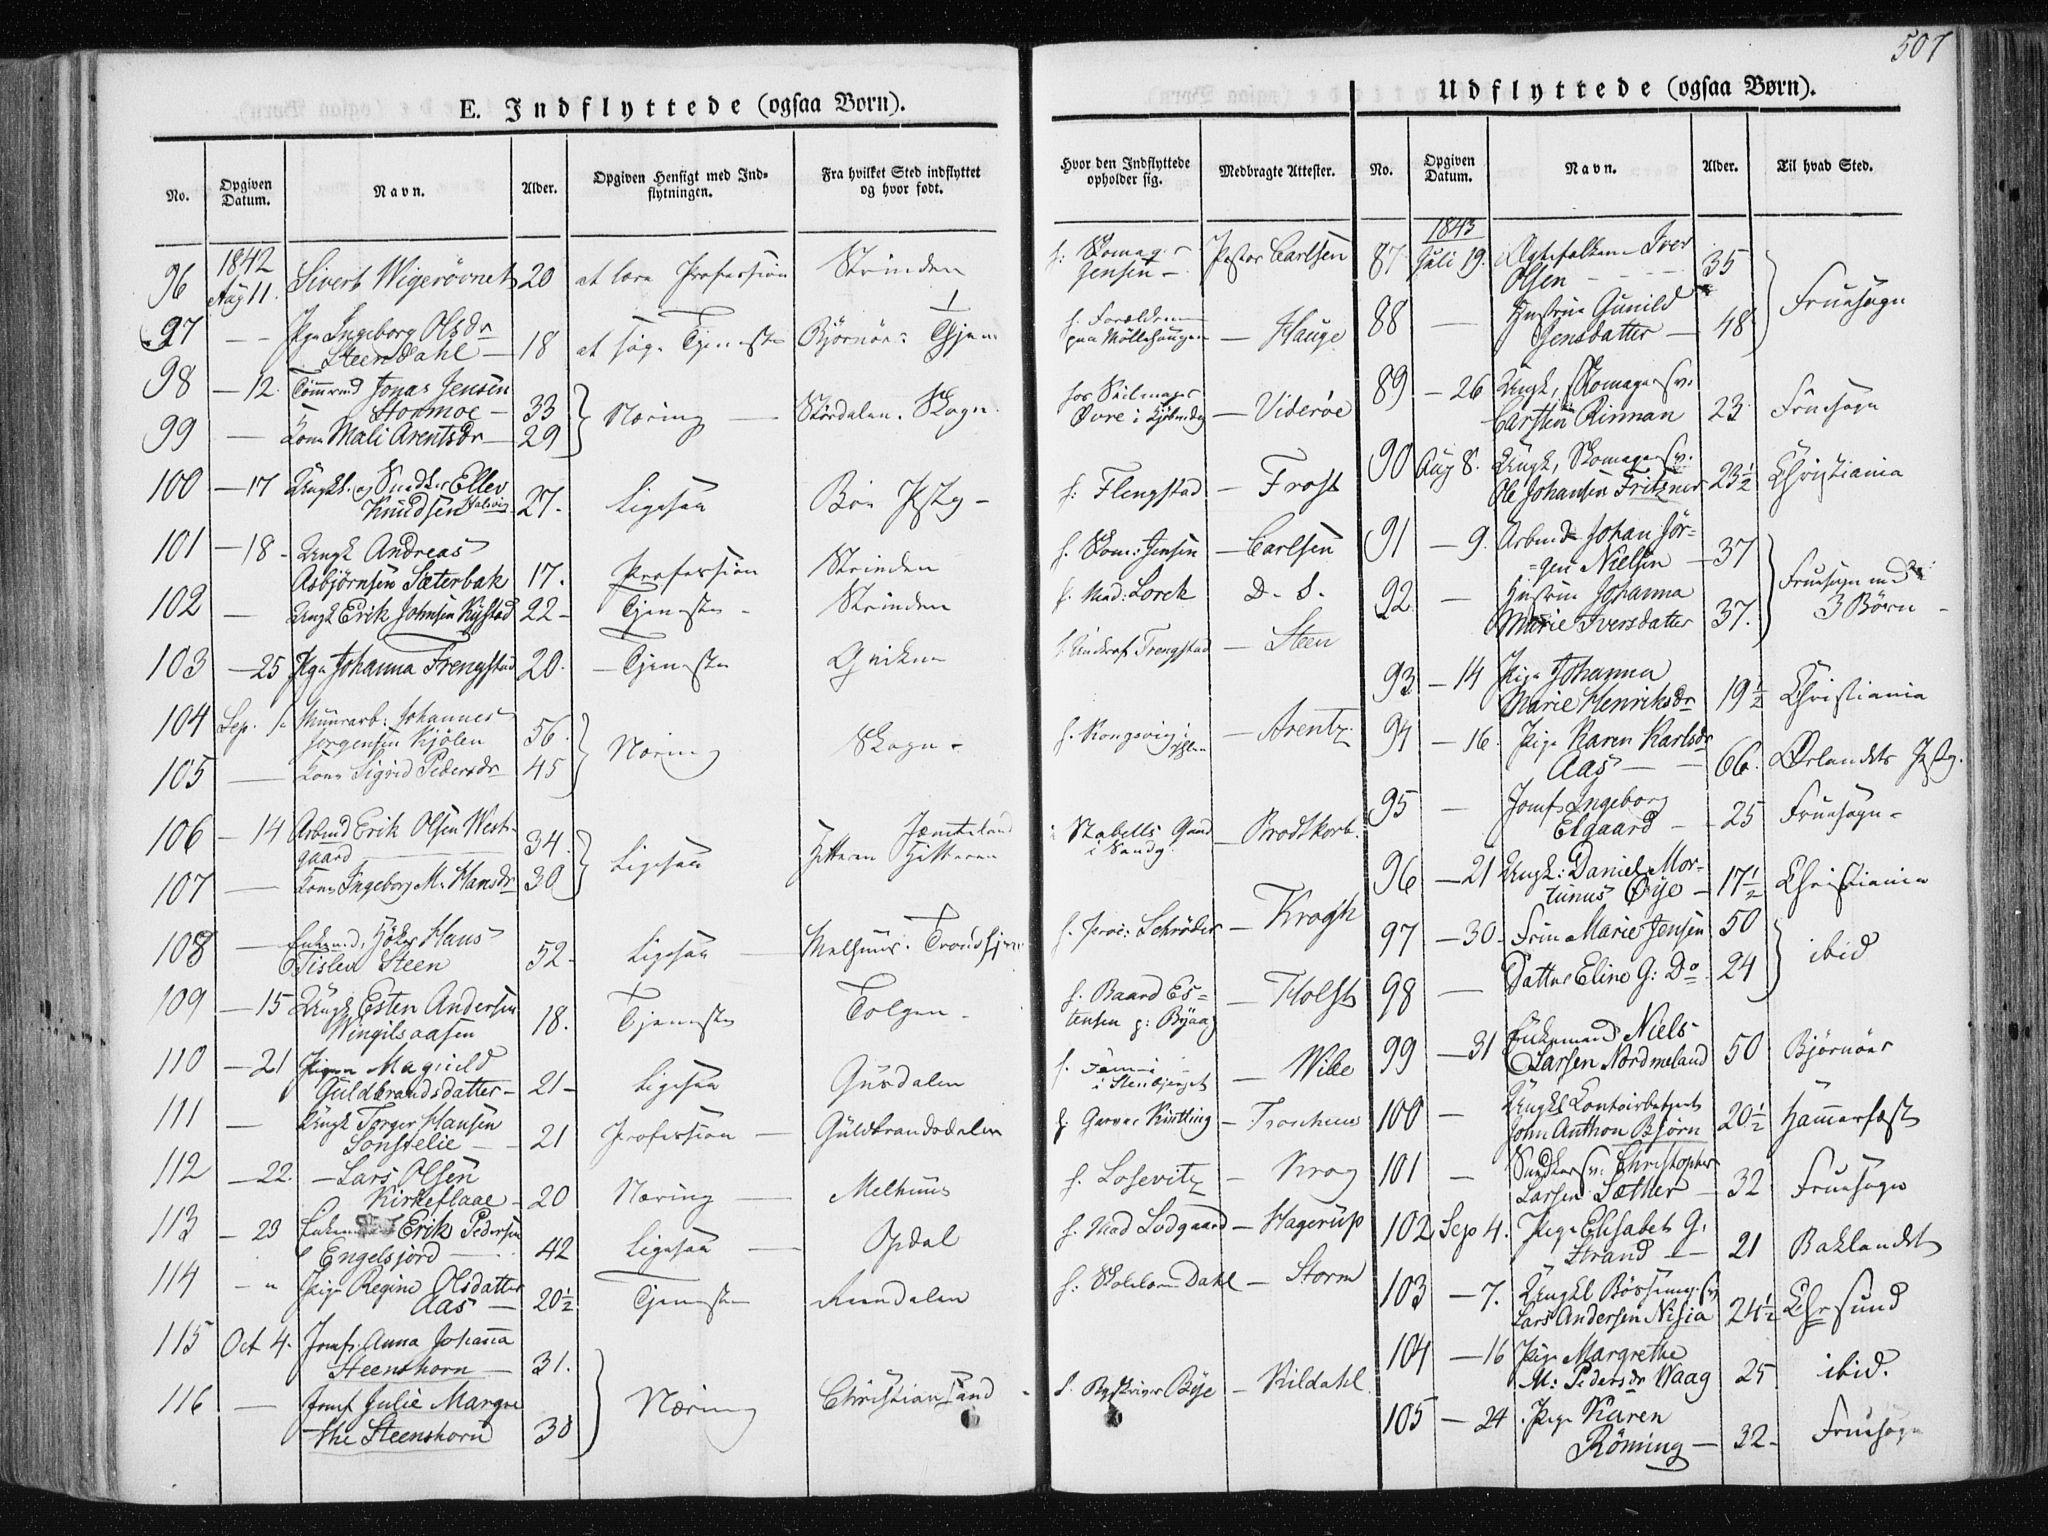 507
E. Indflyttede (ogsaa Børn).
No. Opgiven Datum. Navn. Alder. Opgiven Hensigt med Indflytningen. Fra hvilket Sted indflyttet og hvor født. Hvor den Indflyttede opholder sig. Medbragte Attester.
1842
96 Aug 11. Sivert Wigerövnet 20 at lære Profession Strinden h: Skomag. Jensen – Pastor Carlsen
97 – – Pige Ingeborg Olsdr
Steensdahl – 18 at søge Tjeneste Bjørnør h. Forældrene paa Møllehaugen – Hauge
98 – 12. Tømrmd Jonas Jensen
Hormoe – 33 Næring Størdalen. Skogn. hos Seilmager Øvre i – Viderøe
99 – Kone Mali Arentsdr – 29
100 – 17 Ungk. og Snedker Ellev
Knudsen 27. Ligesaa h: Flengstad – Frost
101 – 18 – Ungk Andreas
Asbjörnsen Sæterbak 17. Profession Strinden h. Skom: Jensen – Carlsen
102 – Ungk Erik Johnsen Rystad 22 – Tjeneste – Strinden h. Mad: Lorck D. S.
103 – 25 Pige Johanna Trengstad 20. – Tjeneste h. Underof. Trengstad – Steen
104 Sep. 1. Muurarb: Johannes
Jörgensen Kjölen 56. Næring Skogn – h. Kongsvig i – Arentz
105 – Kone Sigrid Pedersdr 45
106 – 14 Arbmd Erik Olsen West-
gaard 34. Ligesaa Jæmteland i Stabells Gaard i Sandg. – Brodtkorb
107 – Kone Ingeborg M. Hansdr 30 Hitteren Hitteren
108 – Enkemd, Höker Hans
Tisley Steen 52 – Ligesaa – Melhuus. Trondhjem h. Proc: Schröder – Krogh
109 – 15 Ungk Esten Andersen
Wingilsaasen 18. Tjeneste Tolgen – h. Baard Es-
tensen p: Byaas – Holst
110 – 21 Pigen Magnild
Guldbrandsdatter – 21 – Ligesaa Guldalen – Wibe
111 – Ungk Torger Hansen
Sonstelie – 21 Profession – Guldbrandsdalen h. Garver Kistling –
112 – 22. – Lars Olsen
Kirkeflaae – 20 Næring – Melhuus h. Losevitz – Krog
113 – 23 Enkemd Erik Pedersen
Engelsjord – 42 Ligesaa – Opdal h. Mad Lodgaard – Hagerup
114 – " Pige Regine Olsdatter
Aas – 20½ Tjeneste Reendalen Dahl – Storm
115 Oct 4. Jomf. Anna Johanna
Steenshorn – 31. Næring Christiansund h. Byskriver Bye – Kildahl
116 – Jomf Julie Margre
the Steenshorn 30
Udflyttede (ogsaa Børn).
No. Opgiven Datum. Navn. Alder. Til hvad Sted.
1843
87 Juli 19. Ægtefolkene Iver
Olsen – 35 Fruesogn
88 – Hustrue Gunild
Jensdatter – 48
89 – 26 Ungk, Skomagersv.
Carsten Rinman 23. Fruesogn
90 Aug 8. Ungk, Skomagersv.
Ole Johansen Fritzner 23½ Christiania
91 – 9. Arbmd Johan Jör-
gen Nielsen – 37 Fruesogn med
3 Börn –
92 – Hustrue Johanna
Marie Iversdatter 37.
93 – 14 Pige Johanna
Marie Henriksdr 19½ Christiania
94 – 16. Pige Karen Karlsdr
Aas – 66. Ørlandets Pstg.
95 – Jomf. Ingeborg
Elgaard – 25 Fruesogn –
96 – 21 Ungk: Daniel Mor-
tinus Öye – 17½ Christiania
97 – 30 – Frue Marie Jensen 50 ibid
98 – Datter Eline G: Do 24
99 – 31 Enkemand Niels
Larsen Nordmeland 50 Björnöer
100 – Ungkl Contoirbetjent
John Anthon Björn 20½ Hammerfest
101 – Snedkersv: Christopher
Larsen Sæther – 32 Fruesogn
102 Sep 4. Pige Elisabet G.
Strand – 21 Baklandet
103 – 7. Ungkl Bössemagersv
Lars Andersen Nisja 24½ Chrsund
104 – 16 Pige Margrethe
M: Pedersdr Waag 25 ibid.
105 – 24 Pige Karen
Röming – 32 – Fruesogn